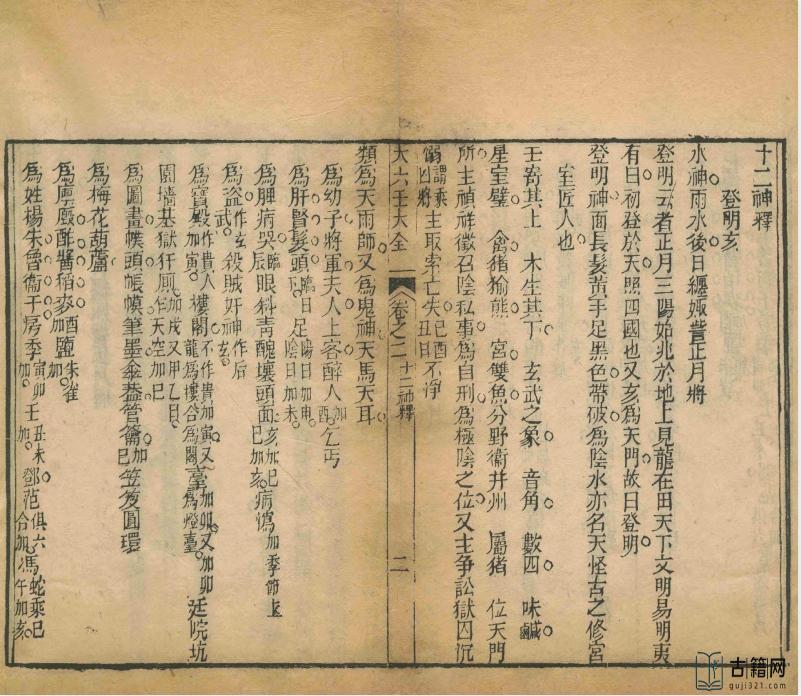 十二神釋
登明亥
水神雨水後日纏娵訾正月將
登明云者正月三陽始兆於地上見龍在田天下文明易明夷
有曰初登於天照四國也又亥爲天門故曰登明
登明神面長髮黃手足黑色帶破爲陰水亦名天怪古之修宮
室匠人也
壬寄其上 木生其下 玄武之象 音角 數四 味鹹
星室璧 禽猪㺄熊 宮雙魚分野衞并州 屬猪 位天門
所主禎祥徵召陰私事爲自刑爲極陰之位又主爭訟獄囚沉
溺謂乘凶將主取索亡失巳酉丑日不淨
大六壬大全 卷之二 十二神釋 二
類爲天雨師又爲鬼神天馬天耳
爲幼子將軍夫人上客醉人加酉乞丐
爲肝腎髮頭臨日足陽日加申陰日加未
爲脾病哭臨辰眼科靑醜壞頭面亥加巳巳加亥病瀉加季節上
爲盜作玄武殺賊奸神作后玄
爲寶殿作貴人加寅樓閣不作貴加寅又龍爲樓合爲閣臺加卯又爲燈臺加卯廷院坑
圊墻基獄犴厠加戌又甲乙日作天空加巳
爲圖畫幞頭帳模筆墨傘葢管籥加巳笠笈圓環
爲梅花葫蘆
爲廩廏酢醬稻麥加酉鹽朱雀加
爲姓楊朱曾衞于房季寅卯加王丑未加鄧范俱六合加馮蛇乘巳午加亥
古籍网
guji321.com